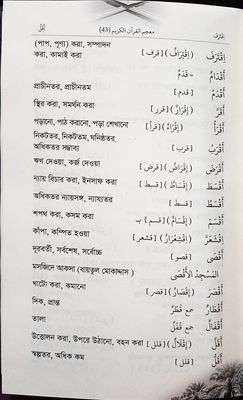 أَقَلُّ معجم القرآن الكريم (43) اِقْتَرَفَ
اِقْتَرَفَ (اِقْتِرَافٌ) [قرف] (পাপ, পূণ্য) করা, সম্পাদন
করা, কামাই করা
أَقْدَامٌ - قَدَمٌ
أَقْدَمُ [قدم] প্রাচীনতর, প্রাচীনতম
أَقَرَّ (إِقْرَارٌ) [قرر] স্থির করা, সমর্থন করা
أَقْرَأَ (إِقْرَاءٌ) [قرأ] পড়ানো, পাঠ করানো, পড়া শেখানো
أَقْرَبُ [قرب] নিকটতর, নিকটতম, ঘনিষ্ঠতর,
অধিকতর সম্ভাব্য
أَقْرَضَ (إِقْرَاضٌ) [قرض] ঋণ দেওয়া, কর্জ দেওয়া
أَقْسَطَ (إِقْسَاطٌ) [قسط] ন্যায় বিচার করা, ইনসাফ করা
أَقْسَطُ [قسط] অধিকতর ন্যায়সঙ্গত, ন্যায্যতর
أَقْسَمَ (إِقْسَامٌ) [قسم] بـ শপথ করা, কসম করা
اِقْشَعَرَّ (اِقْشِعْرَارٌ) [قشعر] কাঁপা, কম্পিত হওয়া
أَقْصَى [قصو] দূরবর্তী, সর্বশেষ, সর্বোচ্চ
المَسْجِدُ الأَقْصَى মসজিদে আকসা (বায়তুল মোকাদ্দাস)
أَقْصَرَ (إِقْصَارٌ) [قصر] খাটো করা, কমানো
أَقْطَارٌ جمع قُطْرٌ দিক, প্রান্ত
أَقْفَالٌ جمع قُفْلٌ তালা
أَقَلَّ (إِقْلَالٌ) [قلل] উত্তোলন করা, উপরে উঠানো, বহন করা
أَقَلُّ [قلل] স্বল্পতর, অধিক কম